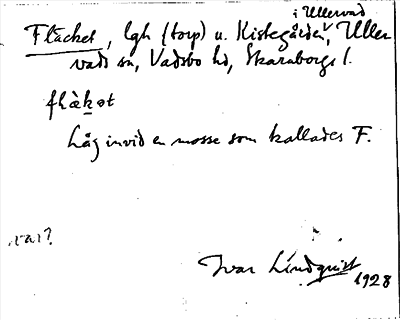 i Ullervad
Fläcket, lgh (torp) u. Kistegården, Uller
vads sn, Vadsbo hd, Skaraborgs l.
flàkət
Låg invid en mosse som kallades F.
var?
Ivar Lindquist
1928